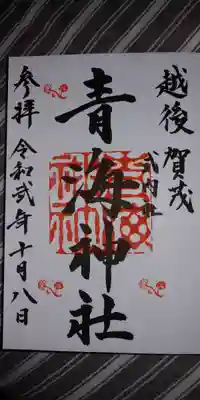 越後賀茂
式内社
青海神社
参拝 令和弐年十月八日